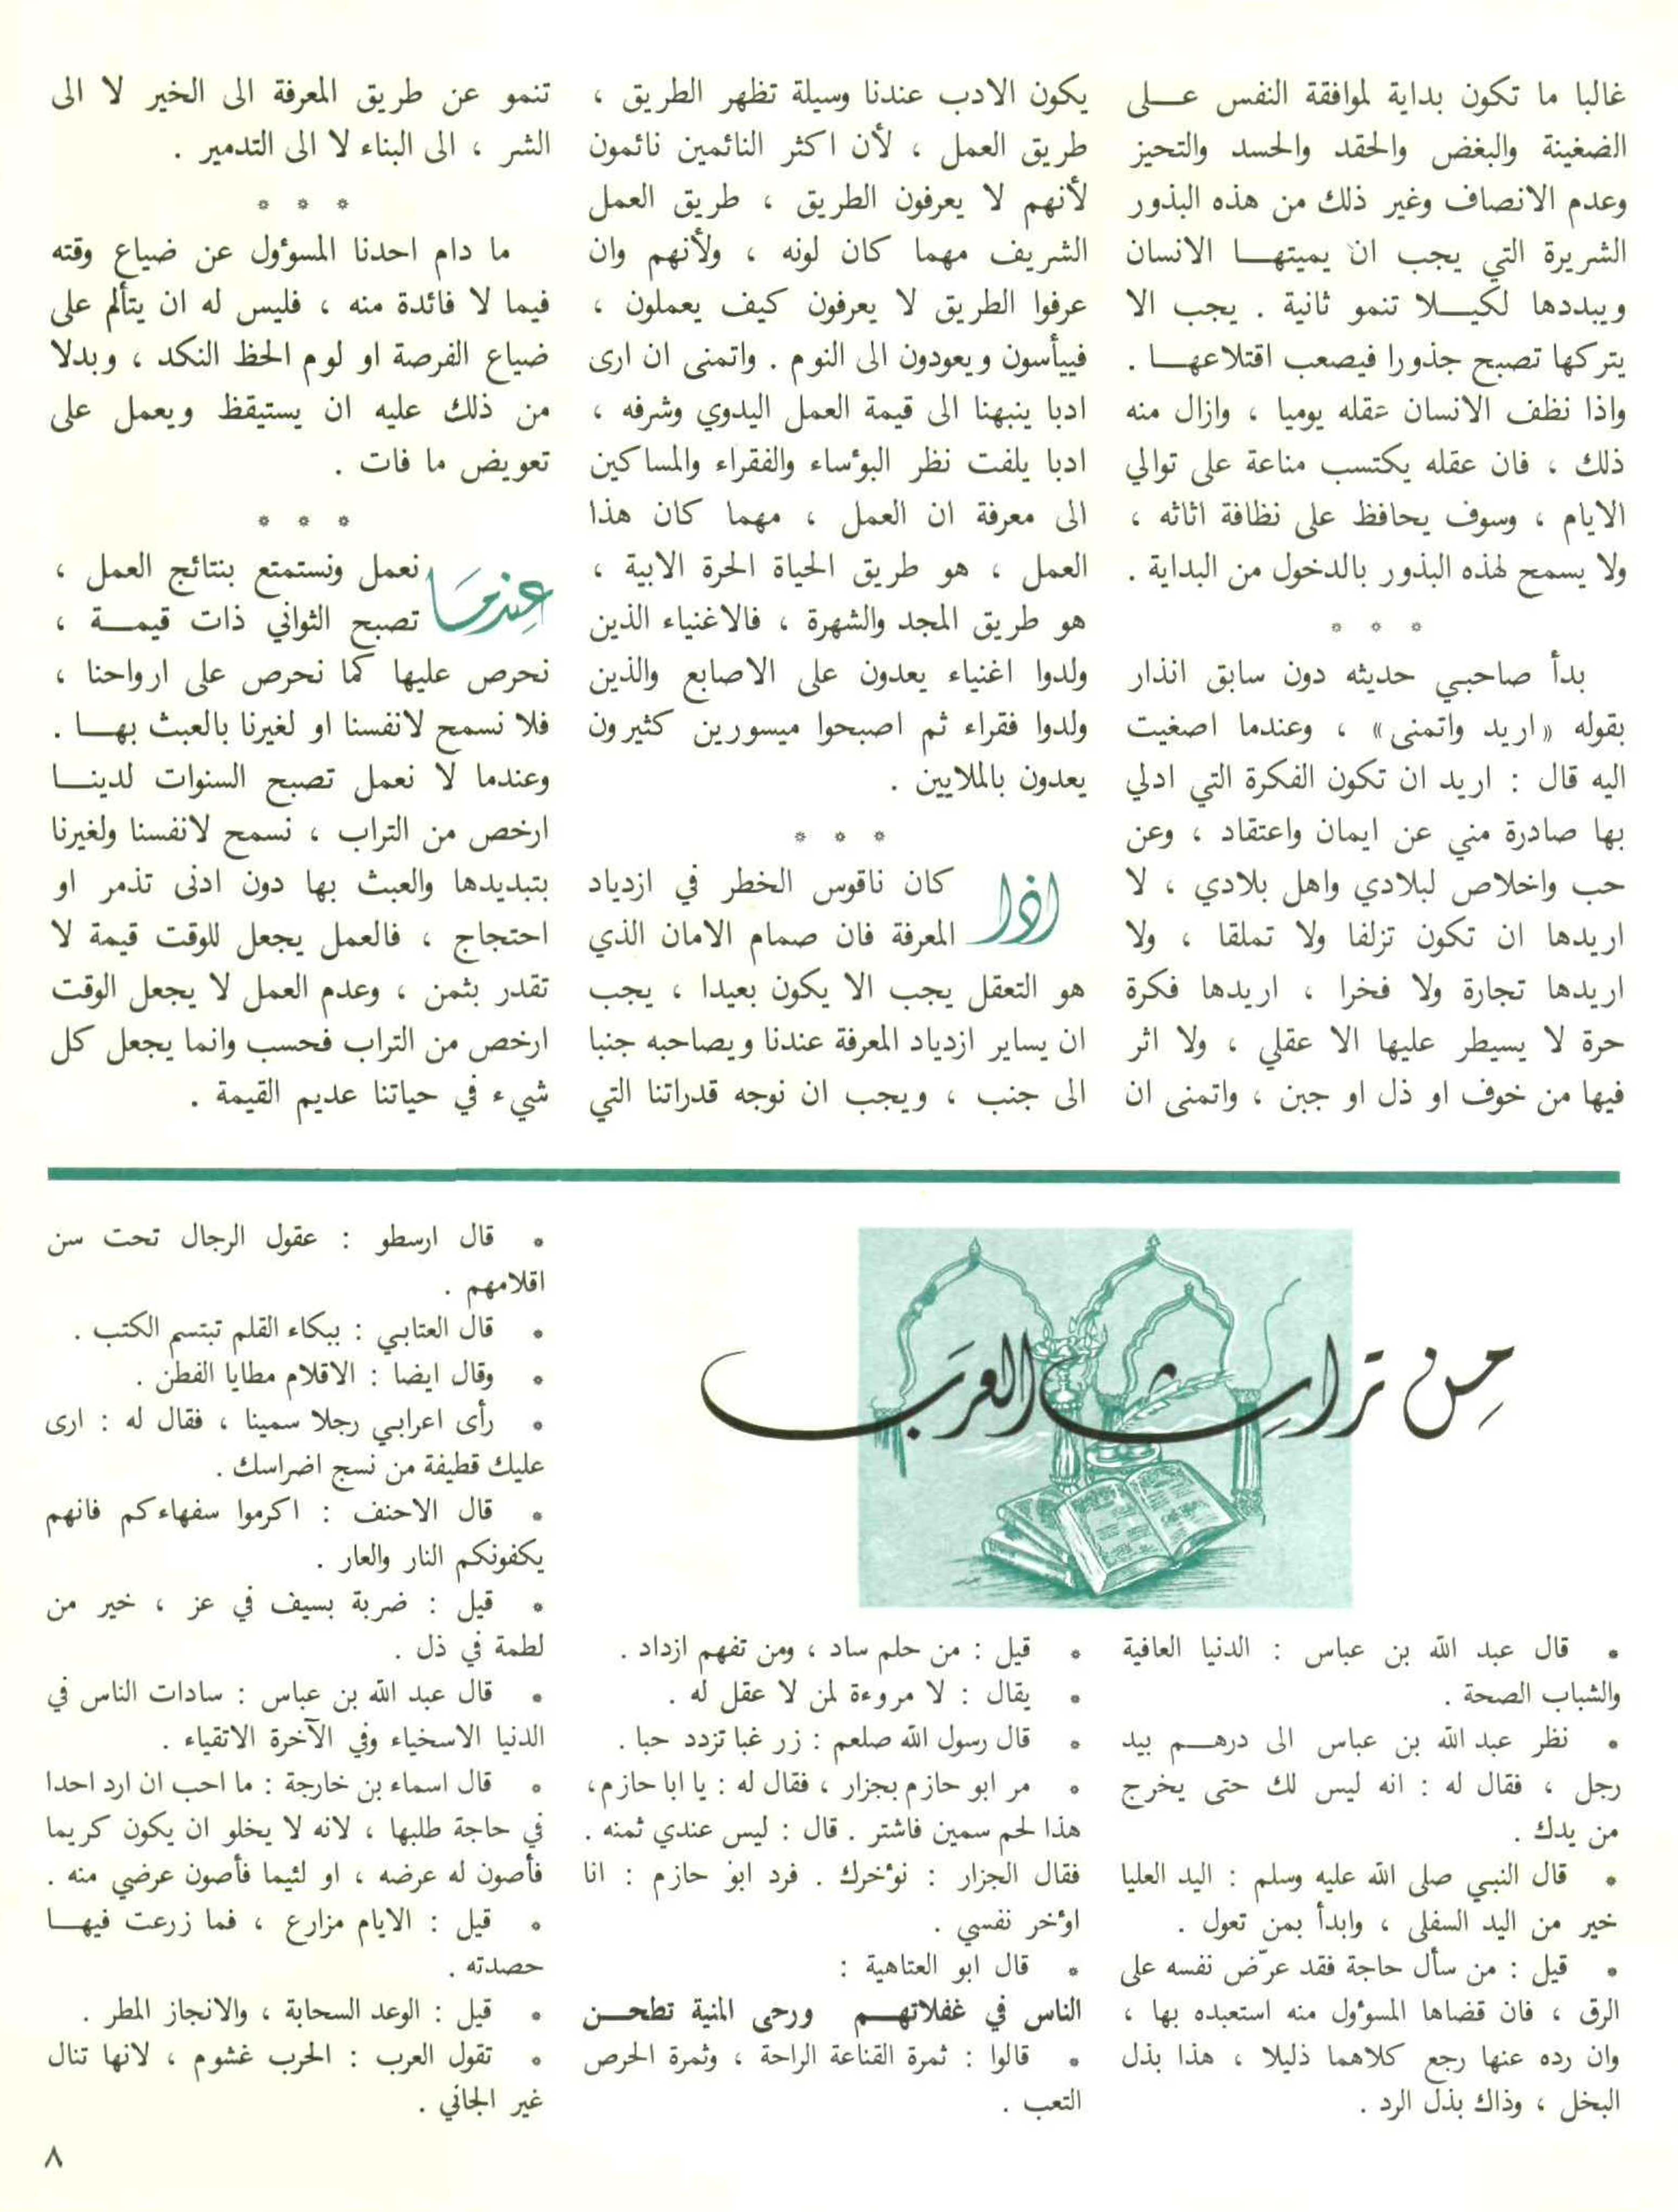 غالبا ما تكون بداية لموافقة النفس عــلى
الضغينة والبغض والحقد والحسد والتحيز
وعدم الانصاف وغير ذلك من هذه البذور
الشريرة التي يجب ان يميتهــا الانسان
ويبددها لكيــلا تنمو ثانية . يجب الا
يتركها تصبح جذورا فيصعب اقتلاعهــا .
واذا نظف الانسان عقله يوميا ، وازال منه
ذلك ، فان عقله يكتسب مناعة على توالي
الايام ، وسوف يحافظ على نظافة اثاثه ،
ولا يسمح لهذه البذور بالدخول من البداية .
* * *
بدأ صاحبي حديثه دون سابق انذار
بقوله «اريد واتمنى» ، وعندما اصغيت
اليه قال : اريد ان تكون الفكرة التي ادلي
بها صادرة مني عن ايمان واعتقاد ، وعن
حب واخلاص لبلادي واهل بلادي ، لا
اريدها ان تكون تزلفا ولا تملقا ، ولا
اريدها تجارة ولا فخرا ، اريدها فكرة
حرة لا يسيطر عليها الا عقلي ، ولا اثر
فيها من خوف او ذل او جبن ، واتمنى ان
يكون الادب عندنا وسيلة تظهر الطريق ،
طريق العمل ، لأن اكثر النائمين نائمون
لأنهم لا يعرفون الطريق ، طريق العمل
الشريف مهما كان لونه ، ولأنهم وان
عرفوا الطريق لا يعرفون كيف يعملون ،
فييأسون ويعودون الى النوم . واتمنى ان ارى
ادبا ينبهنا الى قيمة العمل اليدوي وشرفه ،
ادبا يلفت نظر البؤساء والفقراء والمساكين
الى معرفة ان العمل ، مهما كان هذا
العمل ، هو طريق الحياة الحرة الابية ،
هو طريق المجد والشهرة ، فالاغنياء الذين
ولدوا اغنياء يعدون على الاصابع والذين
ولدوا فقراء ثم اصبحوا ميسورين كثيرون
يعدون بالملايين .
* * *
اذا كان ناقوس الخطر في ازدياد
المعرفة فان صمام الامان الذي
هو التعقل يجب الا يكون بعيدا ، يجب
ان يساير ازدياد المعرفة عندنا ويصاحبه جنبا
الى جنب ، ويجب ان نوجه قدراتنا التي
تنمو عن طريق المعرفة الى الخير لا الى
الشر ، الى البناء لا الى التدمير .
* * *
ما دام احدنا المسؤول عن ضياع وقته
فيما لا فائدة منه ، فليس له ان يتألم على
ضياع الفرصة او لوم الحظ النكد ، وبدلا
من ذلك عليه ان يستيقظ ويعمل على
تعويض ما فات .
* * *
عندما نعمل ونستمتع بنتائج العمل ،
تصبح الثواني ذات قيمــة ،
نحرص عليها كما نحرص على ارواحنا ،
فلا نسمح لانفسنا او لغيرنا بالعبث بهــا .
وعندما لا نعمل تصبح السنوات لدينــا
ارخص من التراب ، نسمح لانفسنا ولغيرنا
بتبديدها والعبث بها دون ادنى تذمر او
احتجاج ، فالعمل يجعل للوقت قيمة لا
تقدر بثمن ، وعدم العمل لا يجعل الوقت
ارخص من التراب فحسب وانما يجعل كل
شيء في حياتنا عديم القيمة .
من تراث العرب
* قال عبد الله بن عباس : الدنيا العافية
والشباب الصحة .
* نظر عبد الله بن عباس الى درهــم بيد
رجل ، فقال له : انه ليس لك حتى يخرج
من يدك .
* قال النبي صلى الله عليه وسلم : اليد العليا
خير من اليد السفلى ، وابدأ بمن تعول .
* قيل : من سأل حاجة فقد عرّض نفسه على
الرق ، فان قضاها المسؤول منه استعبده بها ،
وان رده عنها رجع كلاهما ذليلا ، هذا بذل
البخل ، وذاك بذل الرد .
* قيل : من حلم ساد ، ومن تفهم ازداد .
* يقال : لا مروءة لمن لا عقل له .
* قال رسول الله صلعم : زر غبا تزدد حبا .
* مر ابو حازم بجزار ، فقال له : يا ابا حازم ،
هذا لحم سمين فاشتر . قال : ليس عندي ثمنه .
فقال الجزار : نؤخرك . فرد ابو حازم : انا
اؤخر نفسي .
* قال ابو العتاهية :
الناس في غفلاتهــم ورحى المنية تطحــن
* قالوا : ثمرة القناعة الراحة ، وثمرة الحرص
التعب .
* قال ارسطو : عقول الرجال تحت سن
اقلامهم .
* قال العتابي : ببكاء القلم تبتسم الكتب .
* وقال ايضا : الاقلام مطايا الفطن .
* رأى اعرابي رجلا سمينا ، فقال له : ارى
عليك قطيفة من نسج اضراسك .
* قال الاحنف : اكرموا سفهاءكم فانهم
يكفونكم النار والعار .
* قيل : ضربة بسيف في عز ، خير من
لطمة في ذل .
* قال عبد الله بن عباس : سادات الناس في
الدنيا الاسخياء وفي الآخرة الاتقياء .
* قال اسماء بن خارجة : ما احب ان ارد احدا
في حاجة طلبها ، لانه لا يخلو ان يكون كريما
فأصون له عرضه ، او لئيما فأصون عرضي منه .
* قيل : الايام مزارع ، فما زرعت فيهــا
حصدته .
* قيل : الوعد السحابة ، والانجاز المطر .
* تقول العرب : الحرب غشوم ، لانها تنال
غير الجاني .
٨